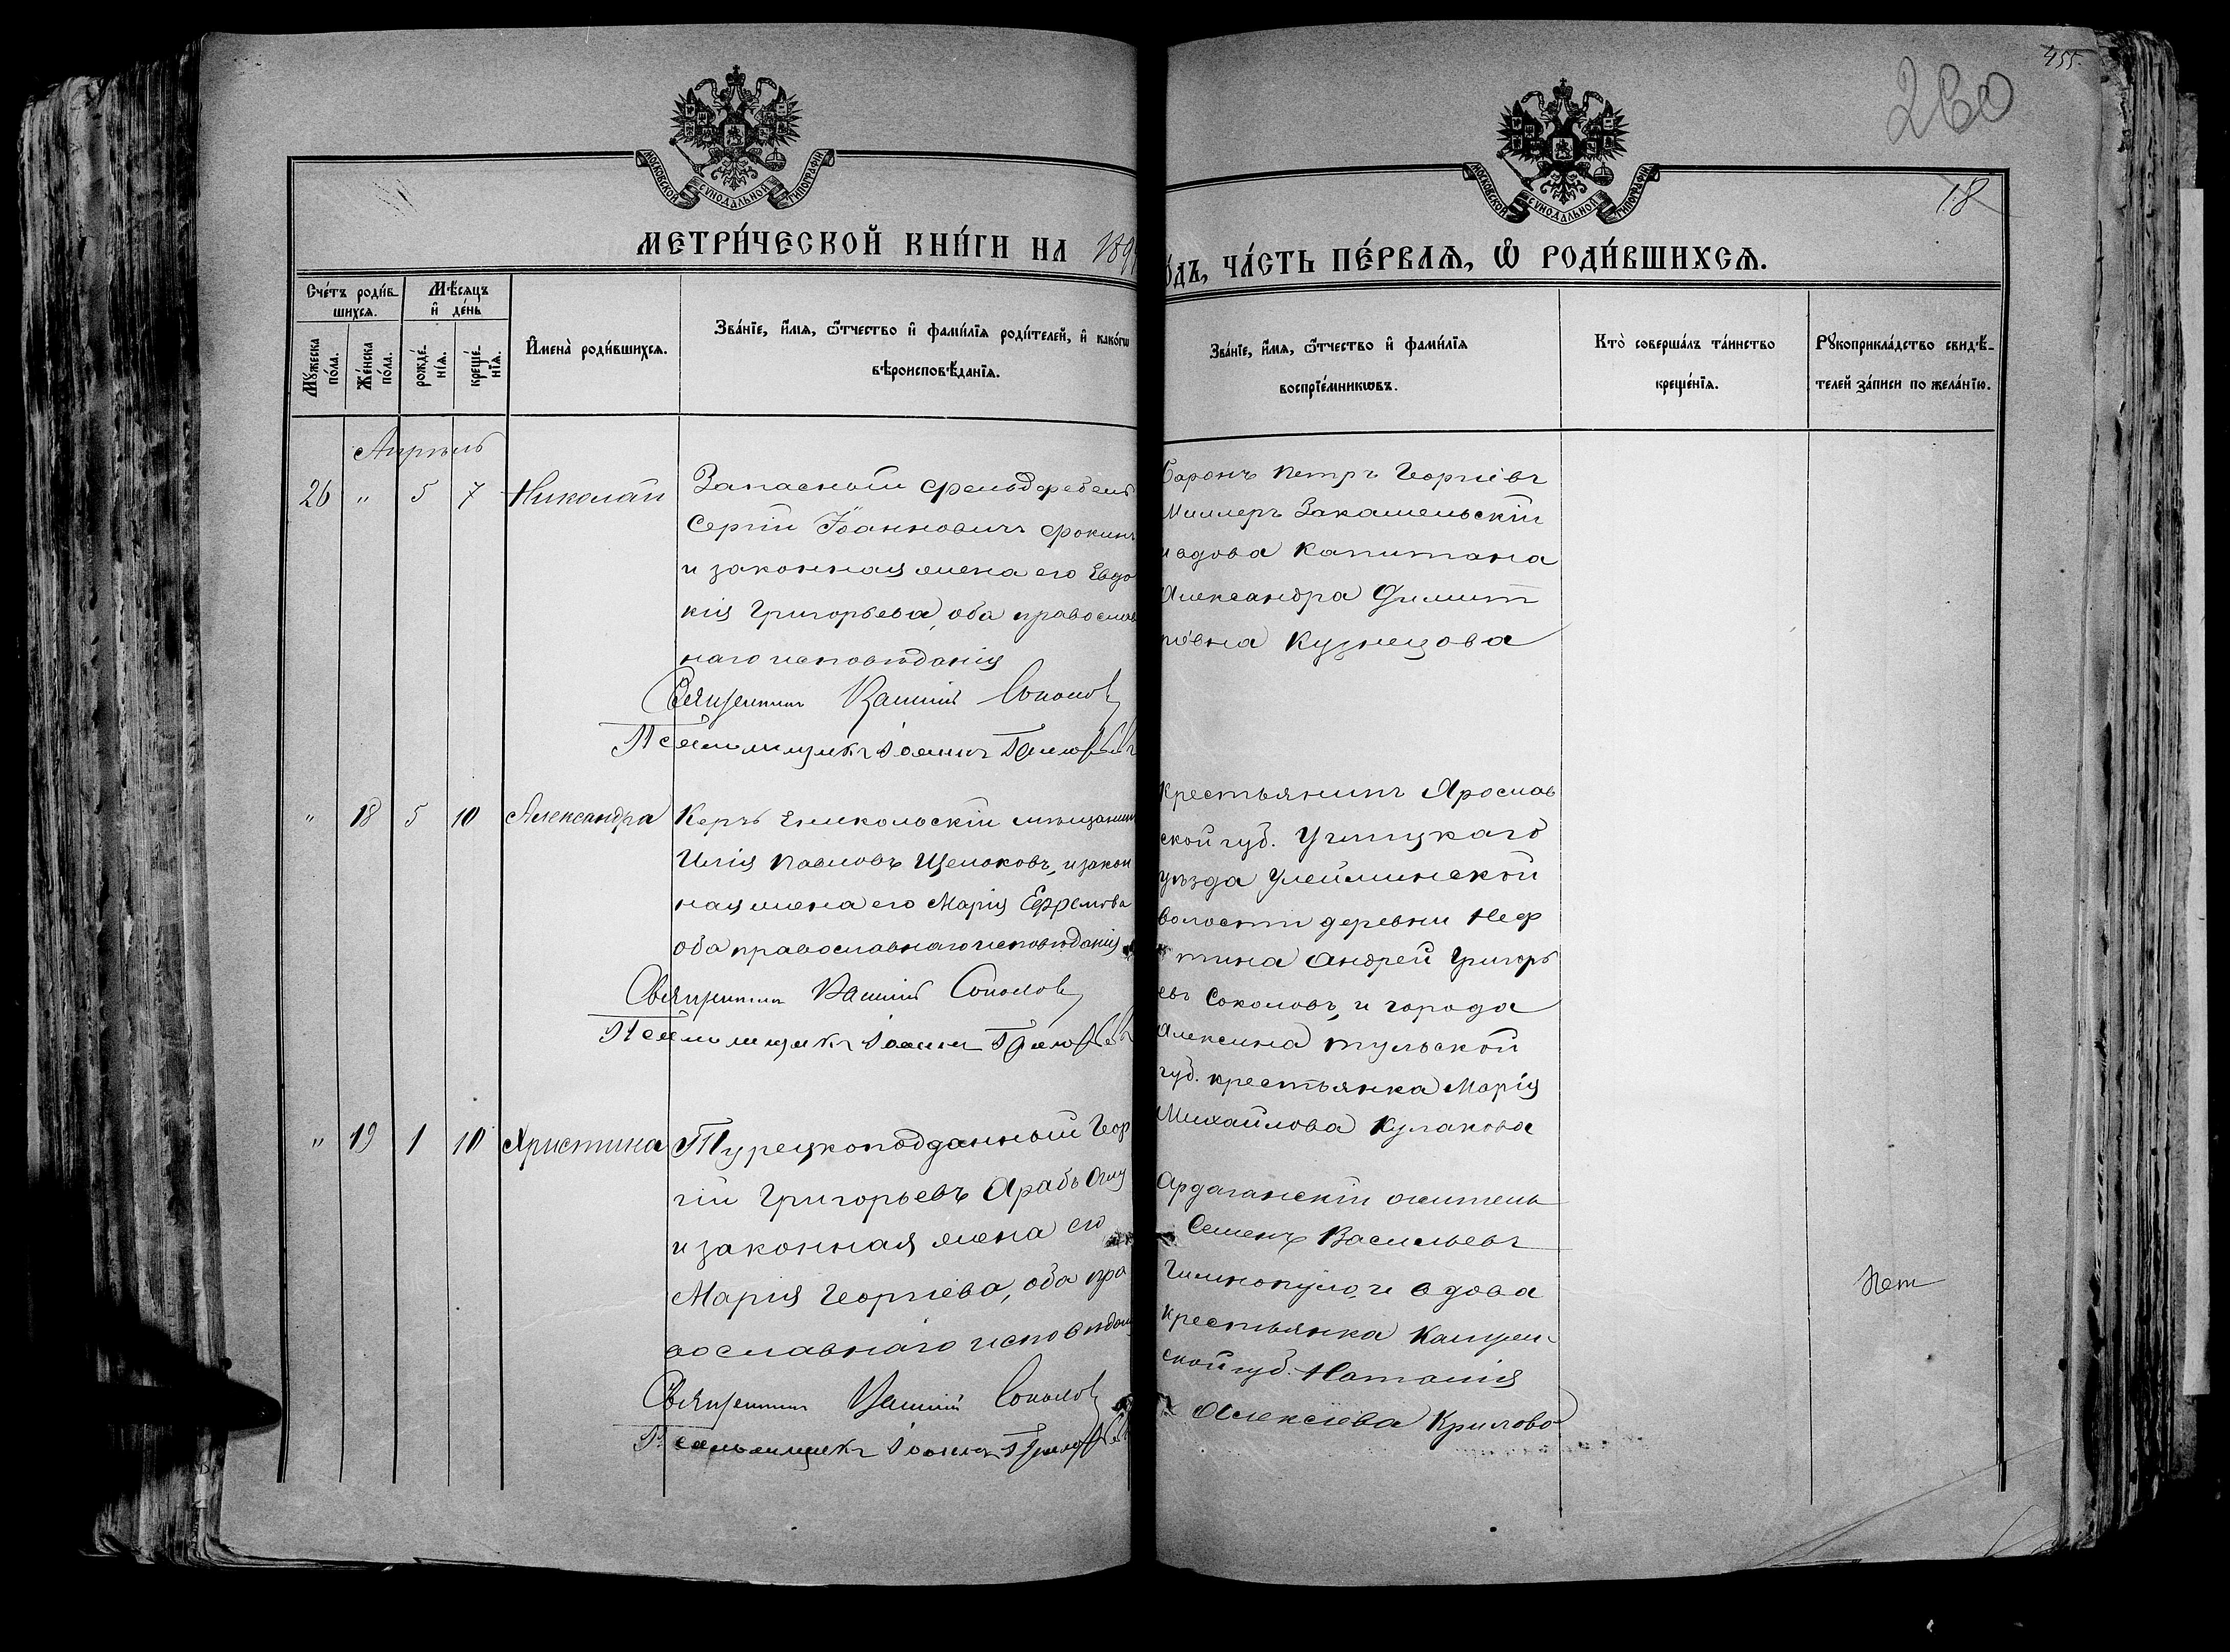 455.
260
18
МОСКОВСКОЙ СѴНОДАЛЬНОЙ ТИПОГРАФІИ
МОСКОВСКОЙ СѴНОДАЛЬНОЙ ТИПОГРАФІИ
МЕТРИ́ЧЕСКОЙ КНИ́ГИ НА 189
о́дъ, ЧА́СТЬ ПЕ́РВАѦ, Ѡ҆ РОДИ́ВШИХСѦ.
Сче́тъ роди́в-
шихсѧ.
Мѣ́сѧцъ
и҆ де́нь
Мꙋ́жеска
по́ла.
Же́нска
по́ла.
рожде́-
нїѧ.
креще́-
нїѧ.
И҆мена̀ роди́вшихсѧ.
Зва́нїе, и҆́мѧ, ѻ҆́тчество и҆ фами́лїѧ роди́телей, и҆ како́гѡ
вѣроисповѣ́данїѧ.
Зва́нїе, и҆́мѧ, ѻ҆́тчество и҆ фами́лїѧ
воспрїе́мникѡвъ.
Кто̀ соверша́лъ та́инство
креще́нїѧ.
Рꙋкоприкла́дство свидѣ́-
телей за́писи по жела́нїю.
Апрѣль
26 " 5 7 Николай
Запасный фельдфебель
Сергій Іоанновичъ Фокинъ
и законная жена его Евдо
кія Григорьева, оба православ
наго исповѣданія
Священникъ Василій Соколовъ
Псаломщикъ Іоаннъ
Баронъ Петръ Георгіевъ
Миллеръ Закомельскій
и вдова Капитана
Александра Димит
ріевна Кузнецова
" 18 5 10 Александра
Керчь Еникольскій мѣщанинъ
Илія Павловъ Щелоковъ, и закон
ная жена его Марія Ефремова
оба православнаго исповѣданія
Священникъ Василій Соколовъ
Псаломщикъ Іоаннъ
Крестьянинъ Ярослав
ской губ. Углицкаго
уѣзда Улейминской
волости деревни Неф
тина Андрей Григорь
евъ Соколовъ, и города
Алексина Тульской
губ. крестьянка Марія
Михайлова Кулакова
" 19 1 10 Христина
Турецкоподданный Геор
гій Григорьевъ Арабъ Оглу
и законная жена его
Марія Георгіева, оба пра
вославнаго исповѣдан
Священникъ Василій Соколовъ
Псаломщикъ Іоаннъ
Ардаганскій житель
Семенъ Васильевъ
и вдова
крестьянка
ской губ. Наталія
Алексіева Крилова
Нет